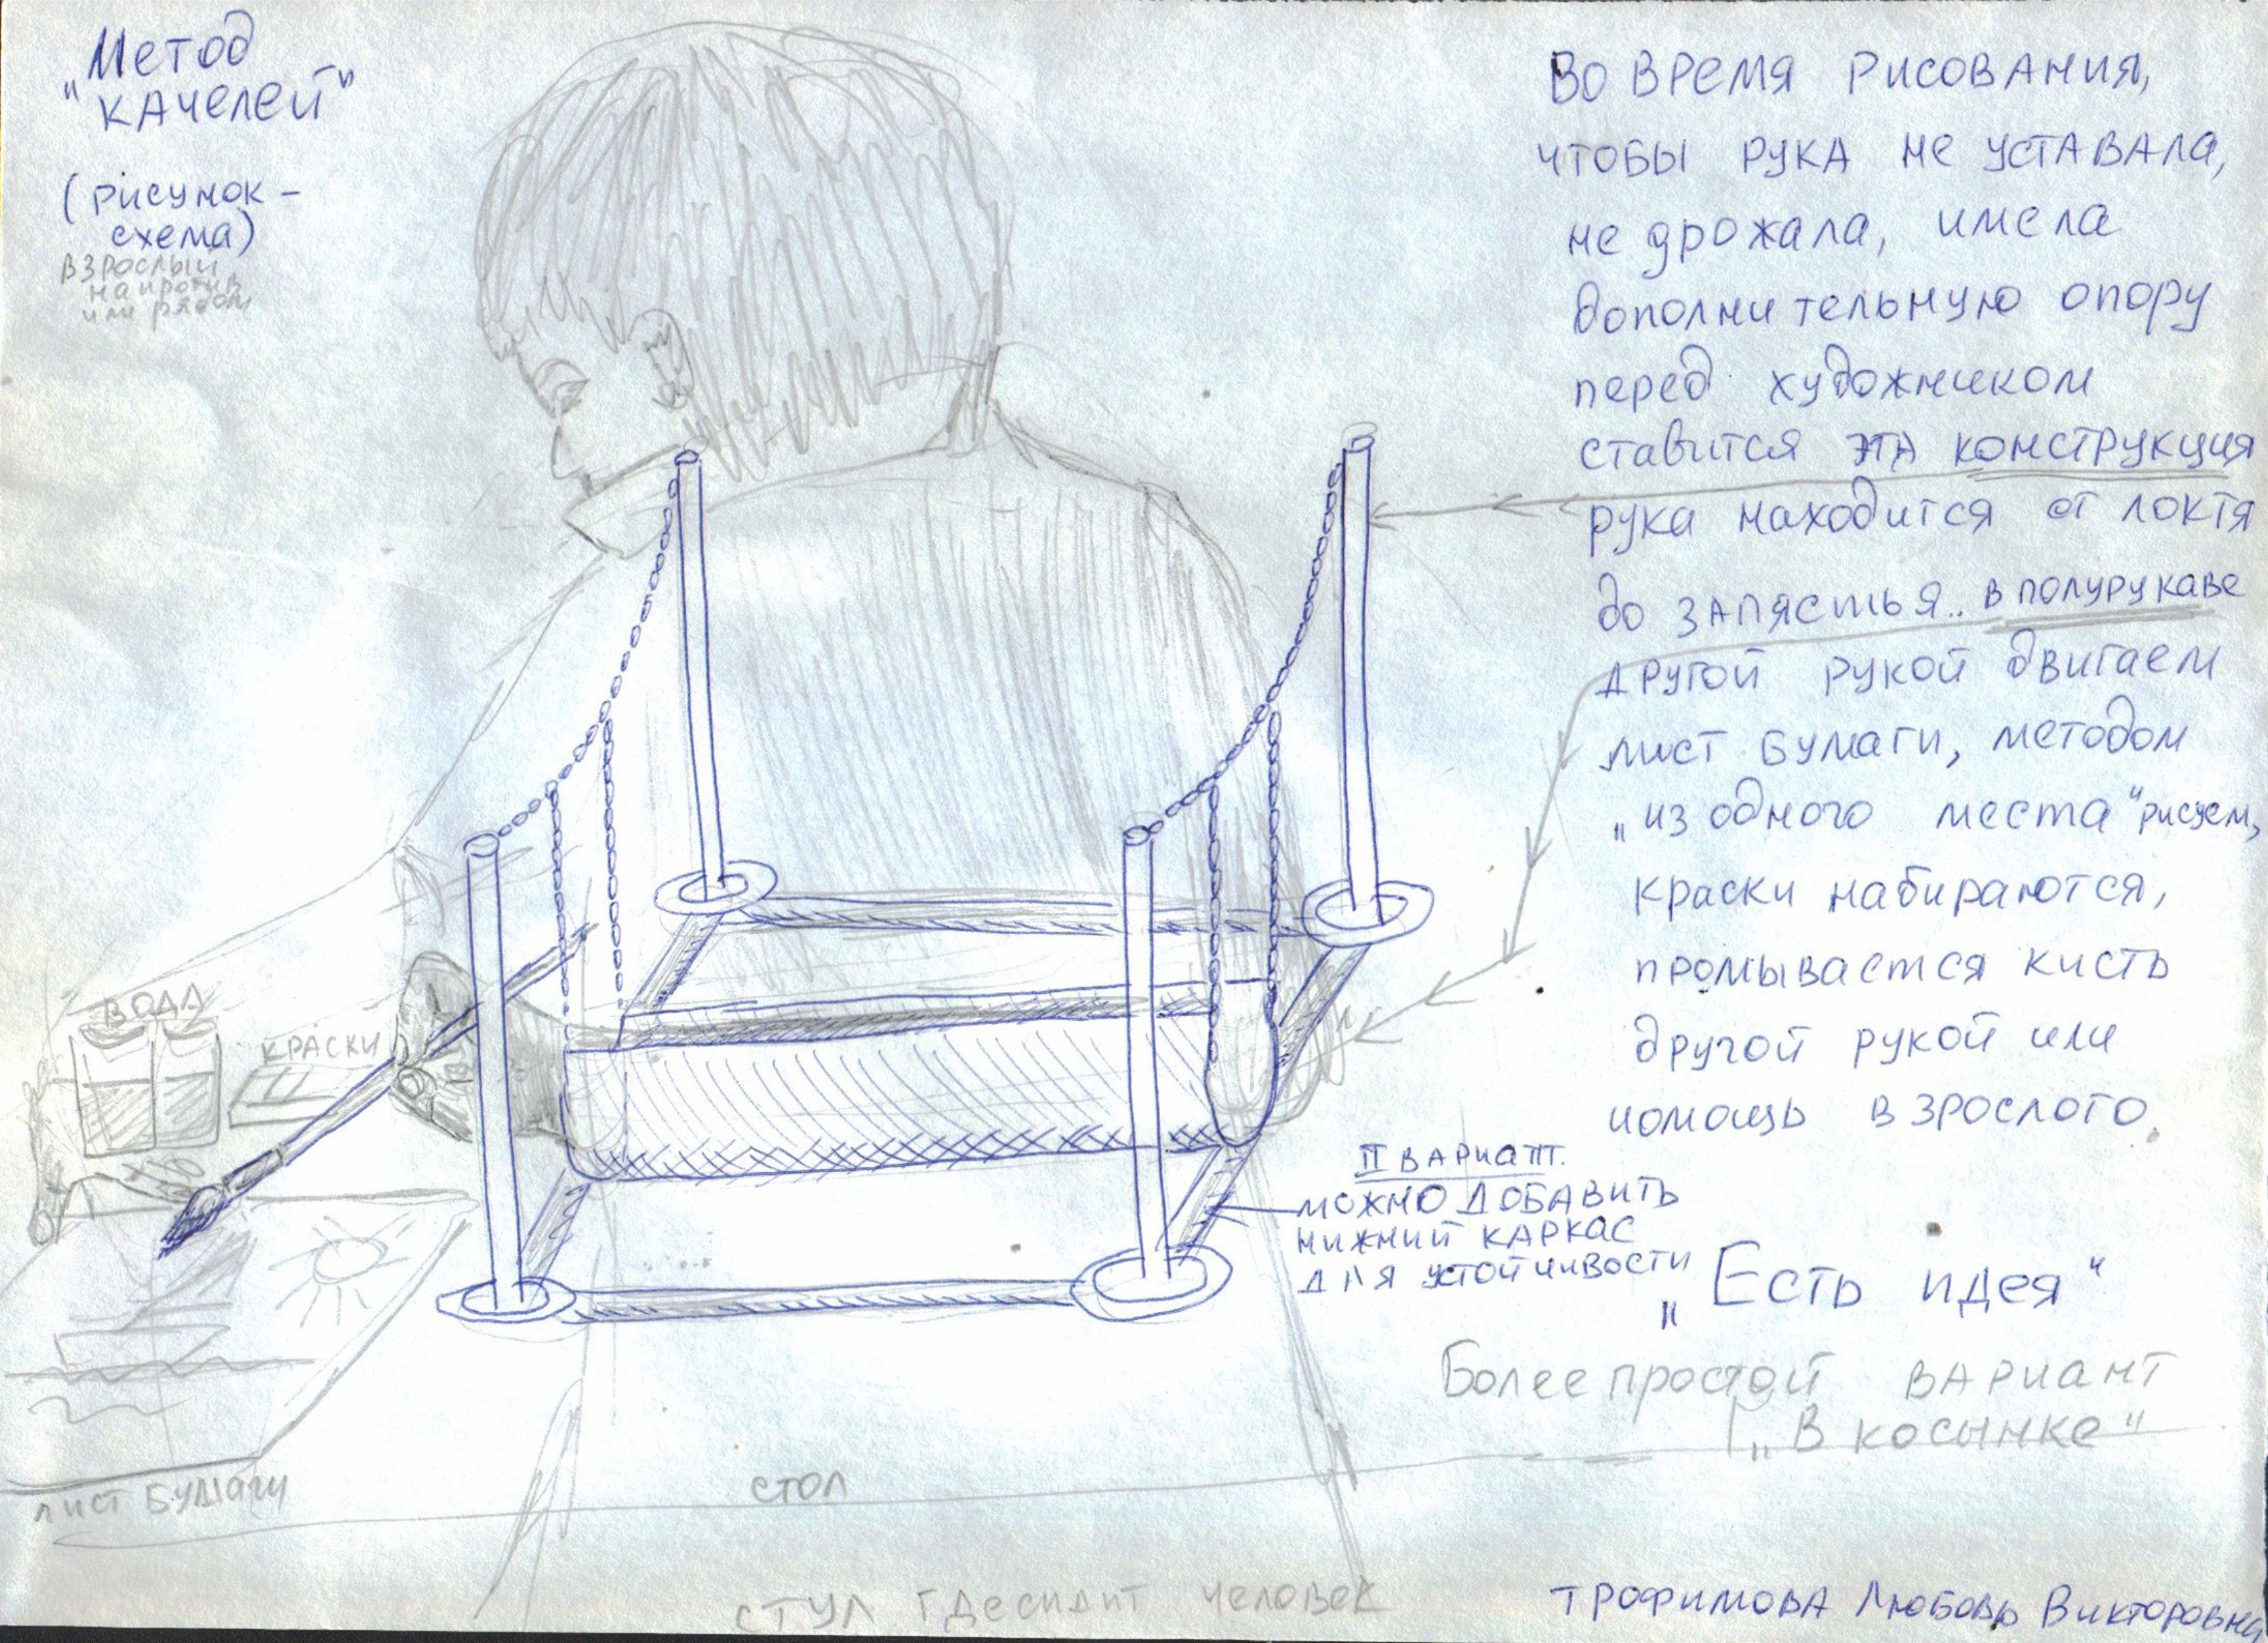 Метод
"качелей"
(рисунок-
схема)
взрослый
напротив
или рядом
Во время рисования,
чтобы рука не уставала,
не дрожала, имела
дополнительную опору
перед художником
ставится эта конструкция
рука находится от локтя
до запястья.. в полурукаве
другой рукой двигаем
лист бумаги, методом
„из одного места" рисуем,
краски набираются,
промывается кисть
другой рукой или
помощь взрослого.
II вариант.
можно добавить
нижний каркас
для устойчивости
„Есть идея"
Более простой вариант
„В косынке"
вода
краски
лист бумаги
стол
стул где сидит человек
Трофимова Любовь Викторовна